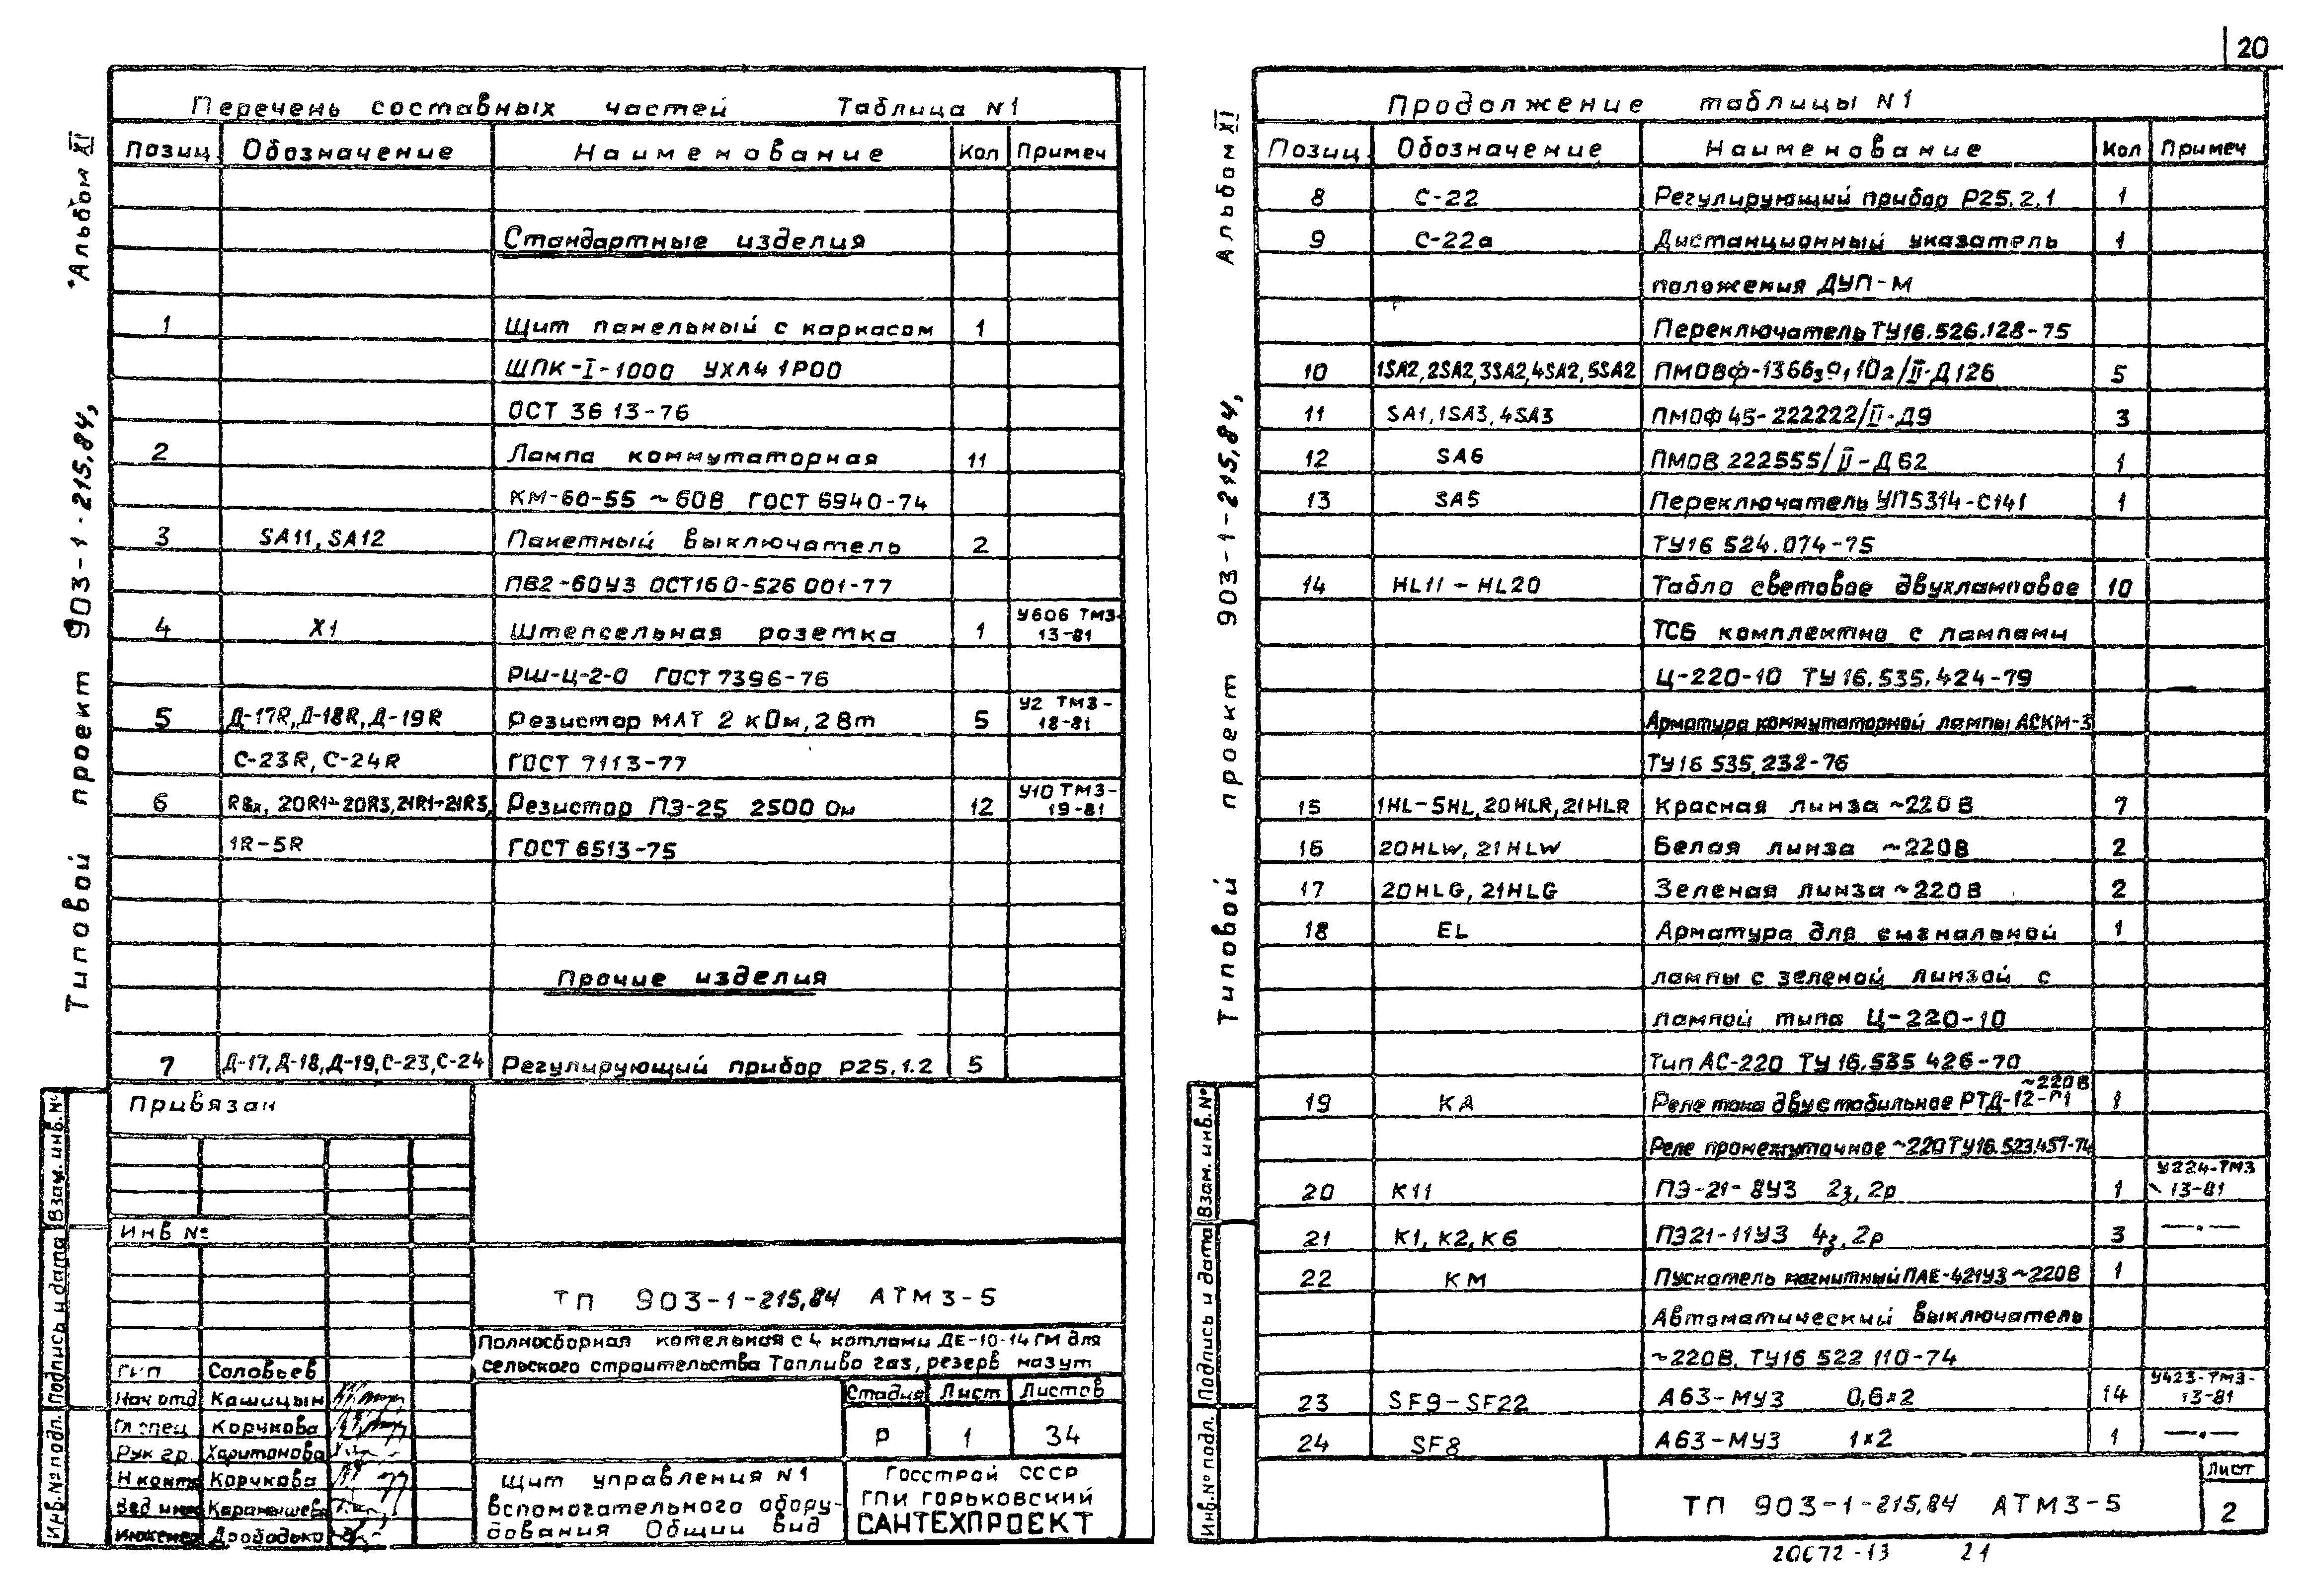 20
Альбом XI
Типовой проект 903-1-215.84,
Перечень составных частей Таблица N1
Позиц Обозначение Наименование Кол Примеч
Стандартные изделия
1 Щит панельный с каркасом 1
ШПК-I-1000 УХЛ4 1Р00
ОСТ 36 13-76
2 Лампа коммутаторная 11
КМ-60-55 ~60В ГОСТ 6940-74
3 SA11, SA12 Пакетный выключатель 2
ПВ2-60У3 ОСТ16 0-526 001-77
4 X1 Штепсельная розетка 1 У606 ТМ3-13-81
РШ-Ц-2-0 ГОСТ 7396-76
5 Д-17R, Д-18R, Д-19R Резистор МЛТ 2 кОм, 2Вт 5 У2 ТМ3-18-81
С-23R, С-24R ГОСТ 7113-77
6 20R1÷20R3, 21R1÷21R3, Резистор ПЭ-25 2500 Ом 12 У10 ТМ3-19-81
1R-5R ГОСТ 6513-75
Прочие изделия
7 Д-17, Д-18, Д-19, С-23, С-24 Регулирующий прибор Р25.1.2 5
Привязан
Инв №
ТП 903-1-215.84 АТМ3-5
Полносборная котельная с 4 котлами ДЕ-10-14ГМ для
сельского строительства Топливо газ, резерв мазут
ГИП Соловьев
Нач отд Кашицын
Гл спец Корчкова
Рук гр. Харитонова
Н контр Корчкова
Вед инж Карамышева
Инженер
Стадия Лист Листов
Р 1 34
Щит управления N1
вспомогательного обору-
дования Общий вид
Госстрой СССР
ГПИ ГОРЬКОВСКИЙ
САНТЕХПРОЕКТ
Взам. инв. №
Подпись и дата
Инв. № подл.
Альбом XI
Типовой проект 903-1-215.84,
Продолжение таблицы N1
Позиц. Обозначение Наименование Кол Примеч
8 С-22 Регулирующий прибор Р25.2.1 1
9 С-22а Дистанционный указатель 1
положения ДУП-М
Переключатель ТУ16.526.128-75
10 1SA2, 2SA2, 3SA2, 4SA2, 5SA2 5
11 SA1, 1SA3, 4SA3 ПМОФ 45-222222/II-Д9 3
12 SA6 ПМОВ 222555/II-Д62 1
13 SA5 Переключатель УП5314-С141 1
ТУ16 524.074-75
14 HL11 - HL20 Табло световое двухламповое 10
ТСБ комплектно с лампами
Ц-220-10 ТУ 16.535.424-79
Арматура коммутаторной лампы АСКМ-3
ТУ16 535.232-76
15 1HL-5HL, 20HLR, 21HLR Красная линза ~220В 7
16 20HLW, 21HLW Белая линза ~220В 2
17 20HLG, 21HLG Зеленая линза ~220В 2
18 EL Арматура для сигнальной 1
лампы с зеленой линзой с
лампой типа Ц-220-10
Тип АС-220 ТУ 16.535 426-70
~220В
19 КА Реле тока двустабильное РТД-12- 1
Реле промежуточное ~220 ТУ16.523.457-74
20 К11 ПЭ-21-8У3 2з, 2р 1 У224-ТМ3 13-81
21 К1, К2, К6 ПЭ21-11У3 4з, 2р 3 —„—
22 КМ Пускатель магнитный ПАЕ-421У3 ~220В 1
Автоматический выключатель
~220В. ТУ16 522 110-74
23 SF9-SF22 А63-МУ3 0,6×2 14 У423-ТМ3-13-81
24 SF8 А63-МУ3 1×2 1 —„—
Взам. инв. №
Подпись и дата
Инв. № подл.
ТП 903-1-215.84 АТМ3-5
Лист
2
20672-13 21